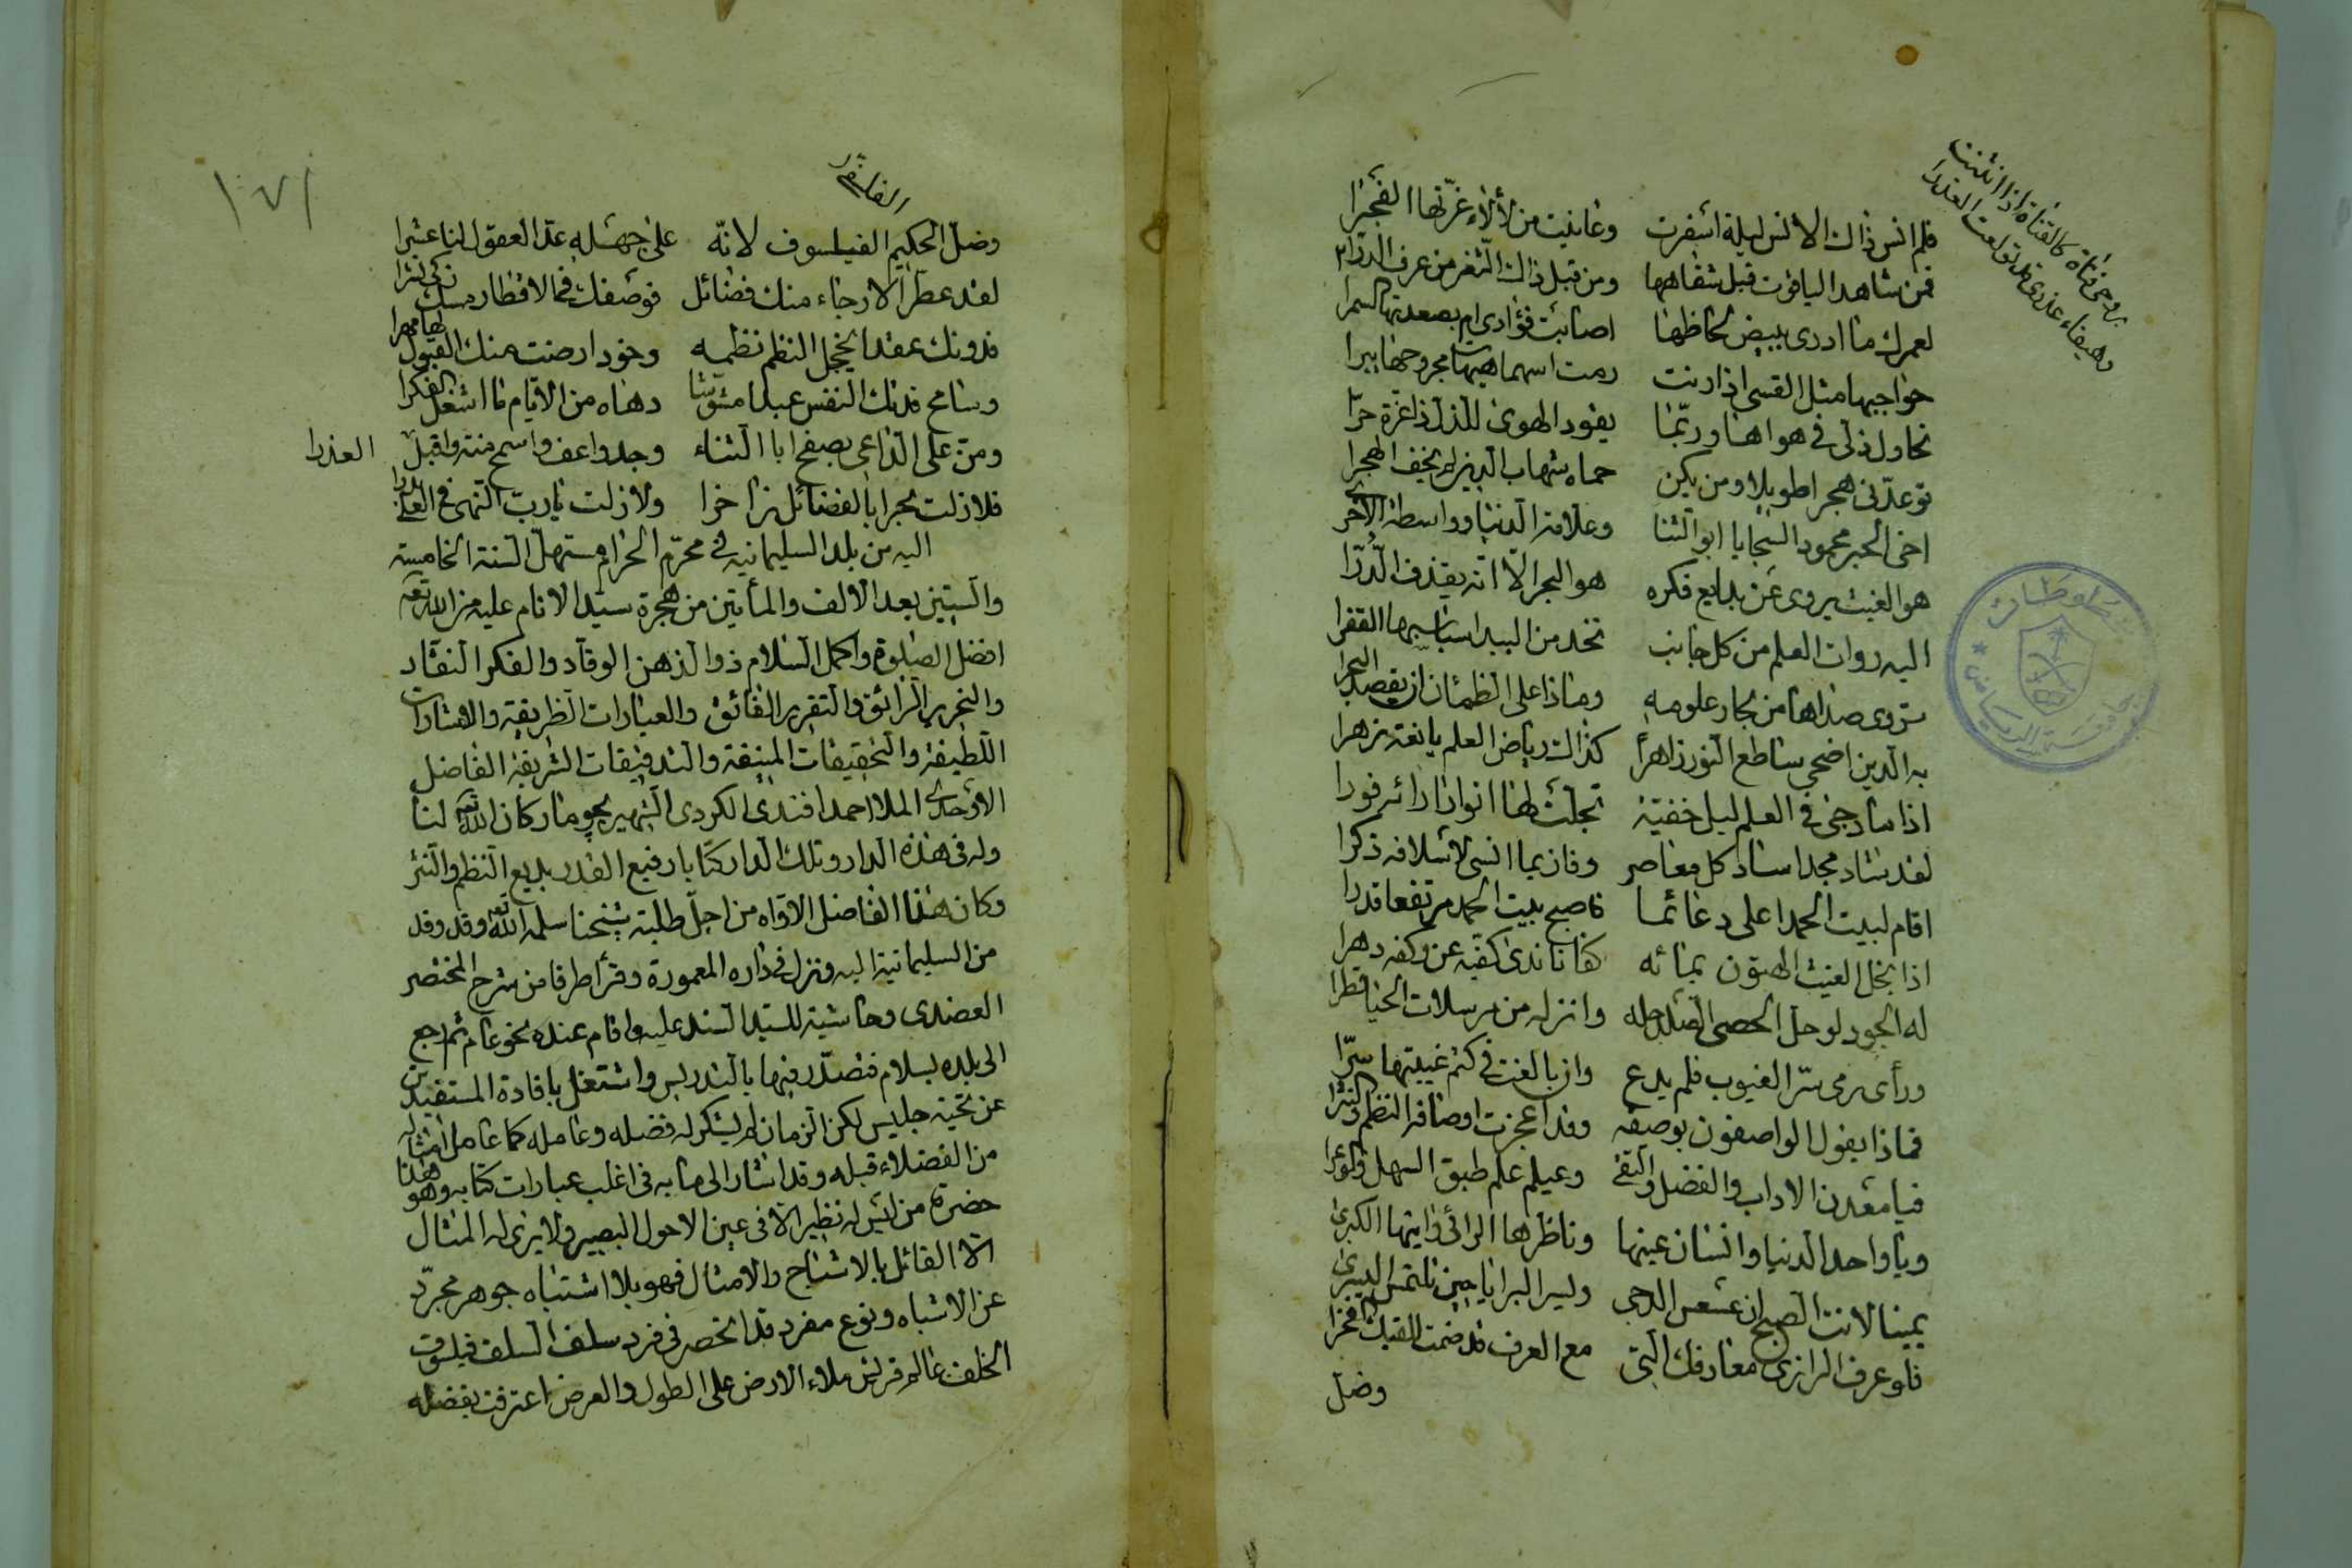 بروحى فتاة كالقناة اذا انثنت
وهيفاء عذرى قد تولعت العذرا
فلم انس ذاك الانس ليلة اسفرت وعاينت من لألاء غرّتها الفجرا
فمن شاهد الياقوت قبل شفاهها ومن قبل ذاك الثغر من عرف الدرّا
لعمرك ما ادرى ببيض لحاظها اصابت فؤادى ام بصعدتها السمرا
حواجبها مثل القسى اذا رنت رمت اسهما هيهات مجروحها يبرا
تحاول ذلى فى هواها وربّما يقود الهوى للذل ذا غرة حرّا
توعدّنى هجرا طويلا ومن يكن حماه شهاب الدين لم يخف الهجرا
اخى الحبر محمود السجايا ابو الثنا وعلامة الدنيا وواسطة الاخرى
هو الغيث يروى عن بدايع فكره هو البحر الّا انّه يقذف الدّرّا
اليه روات العلم من كل جانب تخد من البيد اسباسبها القفرا
تروى صداها من بحار علومه وماذا على الظمئان ان يقصد البحرا
به الدين اضحى ساطع النور زاهرا كذاك رياض العلم يانعة زهرا
اذا ما دجى فى العلم ليل خفيّة تجلت لها انوار ارائه فورا
لقد شاد مجدا ساد كل معاصر وفاز بما انسى لاسلافه ذكرا
اقام لبيت الحمد اعلى دعائما فاصبح بيت الحمد مرتفعا قدرا
اذا بخل الغيث الهتون بمائه كفانا ندى كفّيه عن وكفه دهرا
له الجود لو حل الحصى الصلد حله وانزله من مرسلات الحيا قطرا
ورأى رمى سرّ الغيوب فلم يدع وان بالغت فى كتم غيبتها سرّا
فماذا يقول الواصفون بوصفه وقد اعجزت اوصافه النظم والنثرا
فيا معدن الاداب والفضل والتقى وعيلم علم طبق السهل والوعرا
ويا واحد الدنيا وانسان عينها وناظرها الرائى وايتها الكبرى
يمينا لانت الصبح ان عسعس الدجى وليسر البرايا حين تلتمس اليسرى
فلو عرف الرازى معارفك التى مع العرف قد ضمت لقبك الفخرا
وضل
١٧١
الفارقى
وضلّ الحكيم الفيلسوف لانّه على جهله عدّ العقول لنا عشرا
لقد عطر الارجاء منك فضائل فوصفك فى الاقطار مسك زكى نشرا
فدونك عقدا يخجل النظم نظمه وخود ارضت منك القبول لها مهرا
وسامح فدتك النفس عبدا مشوشا دهاه من الايّام ما اشغل الفكرا
ومنّ على الداعى بصفح ابا الثناء وجد واعف واسمح منة واقبل العذرا
فلا زلت بحرا بالفضائل زاخرا ولا زلت يا ربّ النهى فى العلى بدرا
اليه من بلد السليمانيه فى محرّم الحرام مستهلّ السنة الخامسة
والستين بعد الالف والمأتين من هجرة سيّد الانام عليه من الله تعه
افضل الصلوة واكمل السلام ذو الذهن الوقاد والفكر النقّاد
والتحرير الرائق والتقرير الفائق والعبارات الظريفة والاشارات
اللطيفة والتحقيقات المنيفة والتدقيقات الشريفة الفاضل
الاوحدى الملا احمد افندى الكردى الشهير بچومار كان الله تعه لنا
وله فى هذه الدار وتلك الدار كتابا رفيع القدر بديع النظم والنثر
وكان هذا الفاضل الاوّاه من اجلّ طلبة شيخنا سلمه الله تعه وقد وفد
من السليمانية اليه ونزل فى داره المعمورة وقرأ طرفا من شرح المختصر
العضدى وحاشية للسيد السند عليه واقام عنده نحو عام ثم رجع
الى بلده بسلام فتصدّر فيها بالتدريس واشتغل بافادة المستفيدين
عن تحية جليس لكن الزمان لم يشكر له فضله وعامله كما عامل امثاله
من الفضلاء قبله وقد اشار الى ما به فى اغلب عبارات كتابه وهو هذا
حضرة من ليس له نظير الا فى عين الاحول البصير ولا يرى له المثال
الا القائل بالاشباح والامثال فهو بلا اشتباه جوهر مجرّد
عن الاشباه ونوع مفرد قد انحصر فى فرد سلف السلف فيلسوف
الخلف عالم قريش ملاء الارض على الطول والعرض اعترفت بفضله